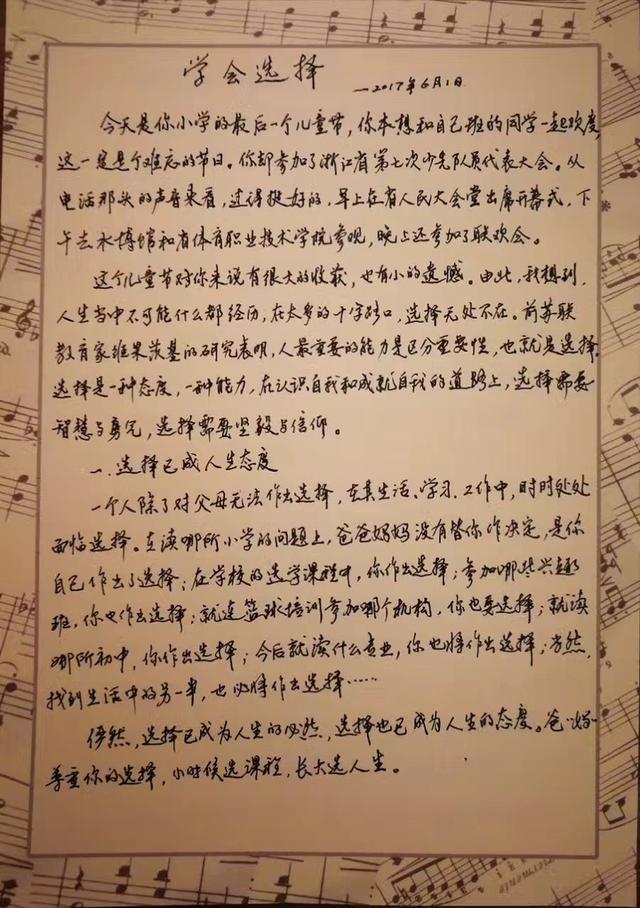 学会选择
—2017年6月1日
今天是你小学的最后一个儿童节，你本想和自己班的同学一起欢度，
这一定是个难忘的节日。你却参加了浙江省第七次少先队员代表大会。从
电话那头的声音来看，过得挺好的，早上在省人民大会堂出席开幕式，下
午去水博馆和省体育职业技术学院参观，晚上还参加了联欢会。
这个儿童节对你来说有很大的收获，也有小的遗憾。由此，我想到，
人生当中不可能什么都经历，在太多的十字路口，选择无处不在。前苏联
教育家维果茨基的研究表明，人最重要的能力是区分重要性，也就是选择。
选择是一种态度，一种能力，在认识自我和成就自我的道路上，选择需要
智慧与勇气，选择需要坚毅与信仰。
一、选择已成人生态度
一个人除了对父母无法作出选择，在其生活、学习、工作中，时时处处
面临选择。在读哪所小学的问题上，爸爸妈妈没有替你作决定，是你
自己作出了选择；在学校的选学课程中，你作出选择；参加哪些兴趣
班，你也作出选择；就连篮球培训参加哪个机构，你也要选择；就读
哪所初中，你作出选择；今后就读什么专业，你也将作出选择；当然，
找到生活中的另一半，也必将作出选择……
俨然，选择已成为人生的必然，选择也已成为人生的态度。爸妈
尊重你的选择，小时候选课程，长大选人生。